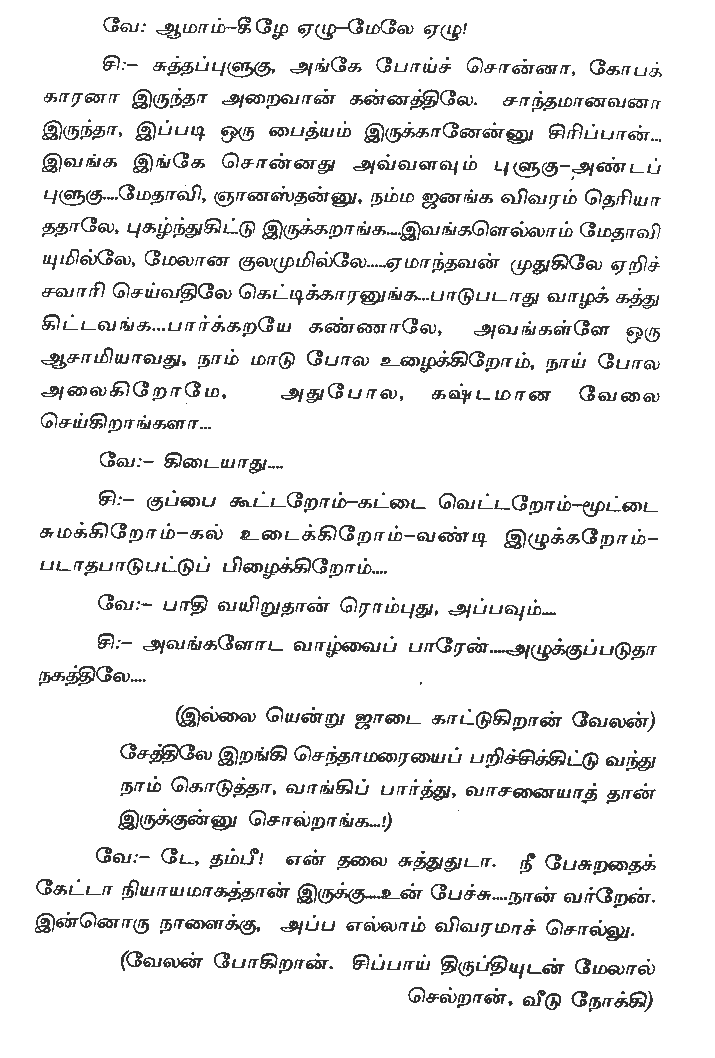 வே: ஆமாம்-கீழே ஏழு-மேலே ஏழு!
சி:- சுத்தப்புளுகு, அங்கே போய்ச் சொன்னா, கோபக்
காரனா இருந்தா அறைவான் கன்னத்திலே. சாந்தமானவனா
இருந்தா, இப்படி ஒரு பைத்யம் இருக்கானேன்னு சிரிப்பான்...
இவங்க இங்கே சொன்னது அவ்வளவும் புளுகு-அண்டப்
புளுகு....மேதாவி, ஞானஸ்தன்னு, நம்ம ஜனங்க விவரம் தெரியா
ததாலே, புகழ்ந்துகிட்டு இருக்கறாங்க....இவங்களெல்லாம் மேதாவி
யுமில்லே, மேலான குலமுமில்லே.....ஏமாந்தவன் முதுகிலே ஏறிச்
சவாரி செய்வதிலே கெட்டிக்காரனுங்க...பாடுபடாது வாழக் கத்து
கிட்டவங்க...பார்க்கறயே கண்ணாலே, அவங்கள்ளே ஒரு
ஆசாமியாவது, நாம் மாடு போல உழைக்கிறோம், நாய் போல
அலைகிறோமே, அதுபோல, கஷ்டமான வேலை
செய்கிறாங்களா...
வே:- கிடையாது....
சி:- குப்பை கூட்டறோம்-கட்டை வெட்டறோம்-மூட்டை
சுமக்கிறோம்-கல் உடைக்கிறோம்-வண்டி இழுக்கறோம்-
படாதபாடுபட்டுப் பிழைக்கிறோம்....
வே:- பாதி வயிறுதான் ரொம்புது, அப்பவும்....
சி:- அவங்களோட வாழ்வைப் பாரேன்.....அழுக்குப்படுதா
நகத்திலே....
(இல்லை யென்று ஜாடை காட்டுகிறான் வேலன்)
சேத்திலே இறங்கி செந்தாமரையைப் பறிச்சிக்கிட்டு வந்து
நாம் கொடுத்தா, வாங்கிப் பார்த்து, வாசனையாத் தான்
இருக்குன்னு சொல்றாங்க...!)
வே:- டே, தம்பீ! என் தலை சுத்துதுடா. நீ பேசுறதைக்
கேட்டா நியாயமாகத்தான் இருக்கு....உன் பேச்சு....நான் வர்றேன்.
இன்னொரு நாளைக்கு, அப்ப எல்லாம் விவரமாச் சொல்லு.
(வேலன் போகிறான். சிப்பாய் திருப்தியுடன் மேலால்
செல்றான், வீடு நோக்கி)